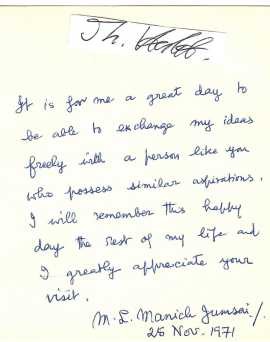 Th.
It is for me a great day to
be able to exchange my ideas
freely with a person like you
who possess similar aspirations.
I will remember this happy
day the rest of my life and
I greatly appreciate your
visit.
M. L. Manich Jumsai/.
25 Nov. 1971